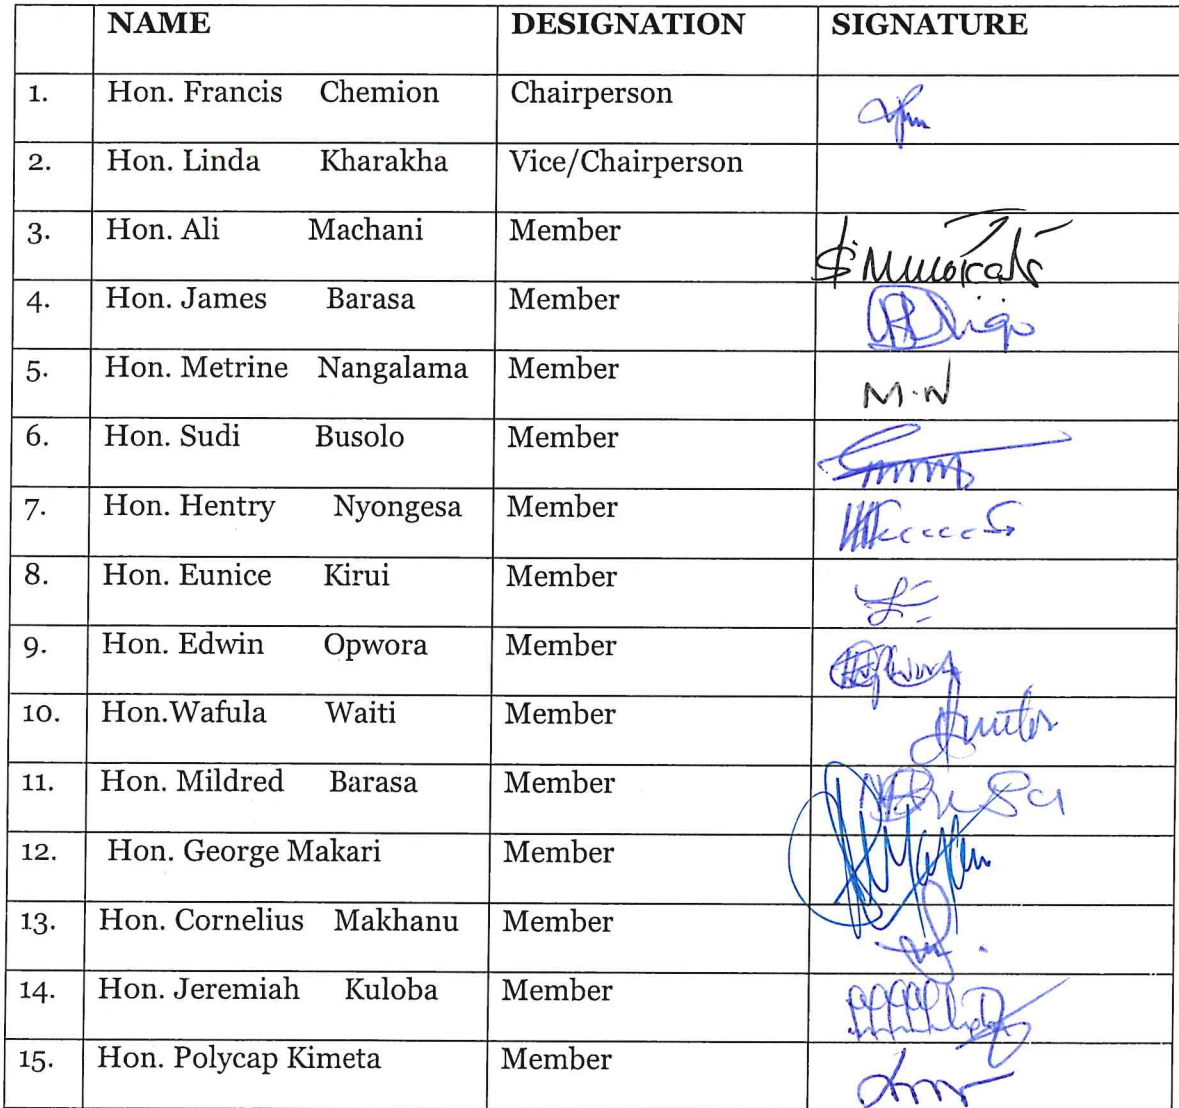 NAME DESIGNATION SIGNATURE
1. Hon. Francis Chemion Chairperson
2. Hon. Linda Kharakha Vice/Chairperson
3. Hon. Ali Machani Member
4. Hon. James Barasa Member
5. Hon. Metrine Nangalama Member M.N
6. Hon. Sudi Busolo Member
7. Hon. Hentry Nyongesa Member
8. Hon. Eunice Kirui Member
9. Hon. Edwin Opwora Member
10. Hon.Wafula Waiti Member
11. Hon. Mildred Barasa Member
12. Hon. George Makari Member
13. Hon. Cornelius Makhanu Member
14. Hon. Jeremiah Kuloba Member
15. Hon. Polycap Kimeta Member